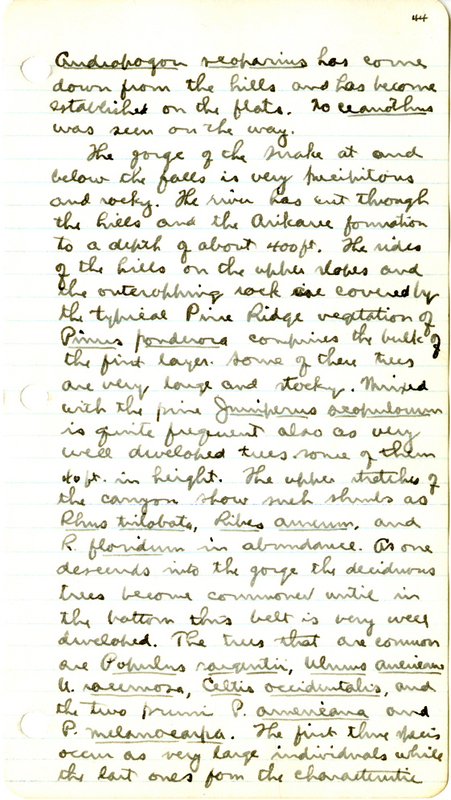 44
Andropogon scoparius has come
down from the hills and has become
established on the flats. No ceanothus
was seen on the way.
The gorge of the Snake at and
below the falls is very precipitous
and rocky. The river has cut through
the hills and the Arikaree formation
to a depth of about 400 ft. The sides
of the hills on the upper slopes and
the outcropping rock are covered by
the typical Pine Ridge vegetation of
Pinus ponderosa comprises the bulk of
the first layer. Some of these trees
are very large and stocky. Mixed
with the pine Juniperus scopulorum
is quite frequent also as very
well developed trees some of them
40 ft. in height. The upper stretches of
the canyon show such shrubs as
Rhus trilobata, Ribes aureum, and
R. floridum in abundance. As one
descends into the gorge the deciduous
trees become commoner until in
the bottom this belt is very well
developed. The trees that are common
are Populus sargentii, Ulmus americana
U. racemosa, Celtis occidentalis, and
the two pruni P. americana and
P. melanocarpa. The first three species
occur as very large individuals while
the last ones form the characteristic